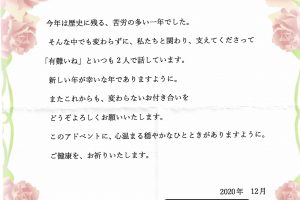 今年は歴史に残る、苦労の多い一年でした。
そんな中でも変わらずに、私たちと関わり、支えてくださって
「有難いね」といつも２人で話しています。
新しい年が幸いな年でありますように。
またこれからも、変わらないお付き合いを
どうぞよろしくお願いいたします。
このアドベントに、心温まる穏やかなひとときがありますように。
ご健康を、お祈りいたします。
2020年　12月